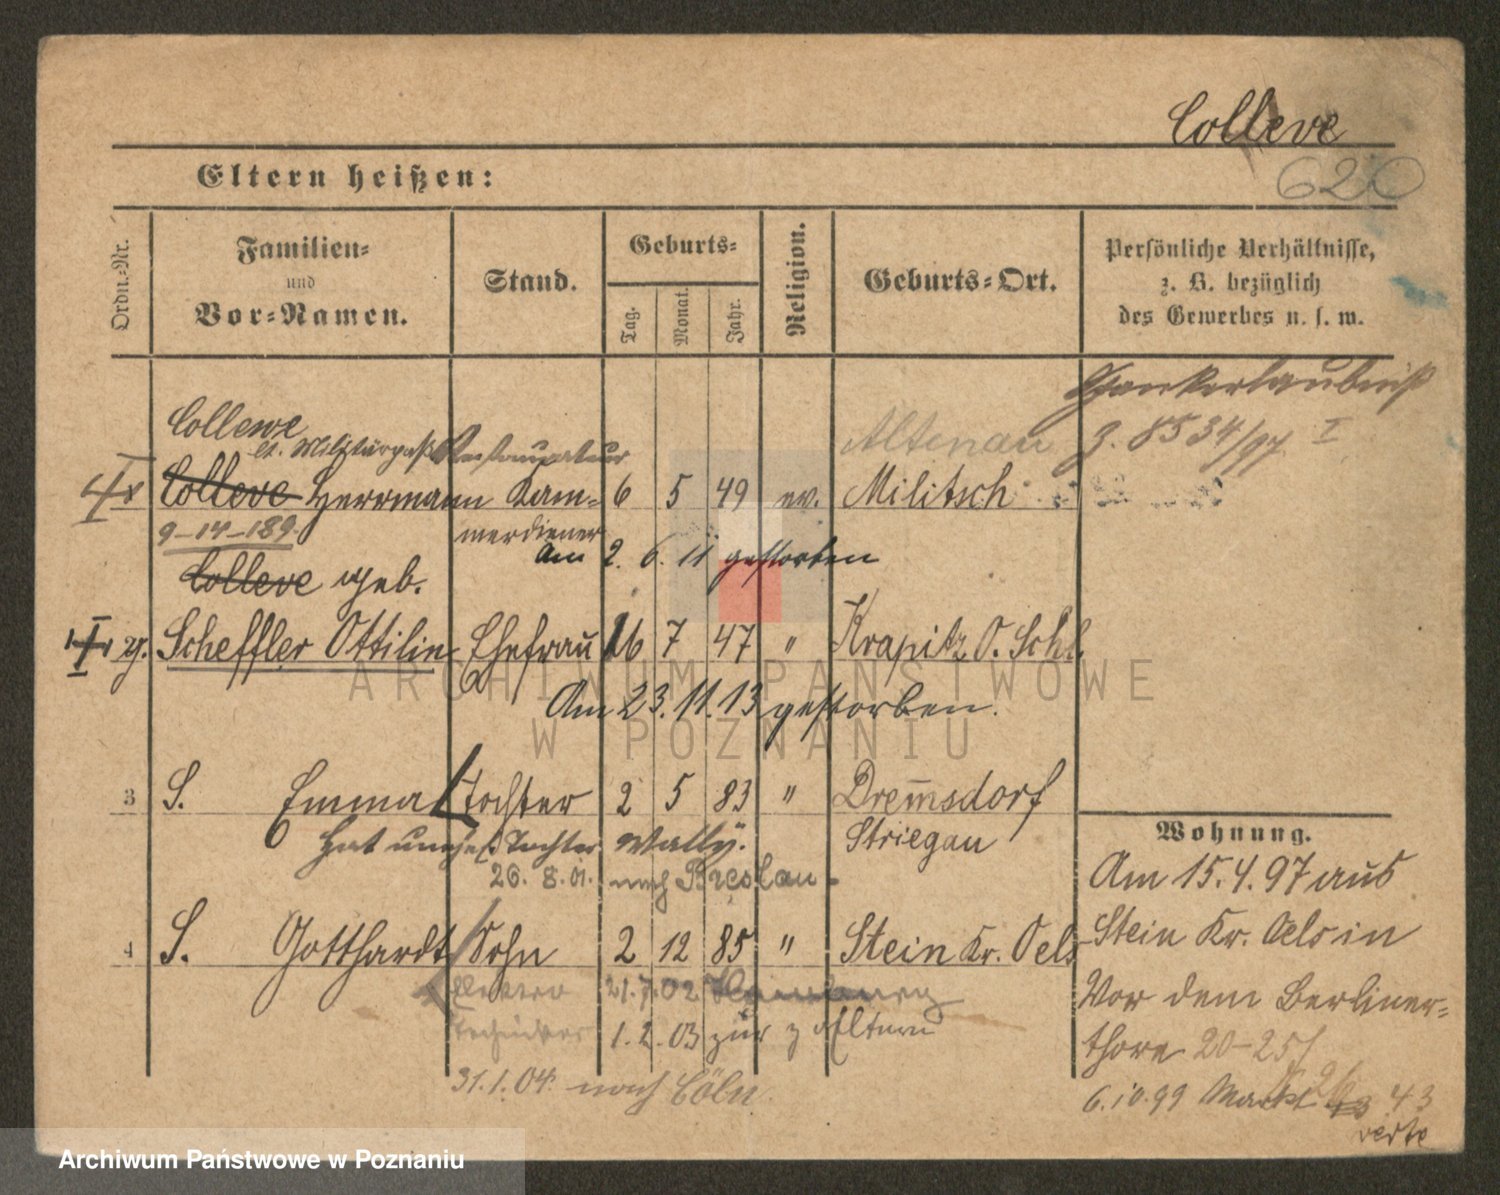 Colleve
620
Eltern heißen:
Ordn.-Nr.
Familien-
und
Vor-Namen.
Stand.
Geburts-
Tag.
Monat.
Jahr.
Religion.
Geburts-Ort.
Persönliche Verhältnisse,
z. B. bezüglich
des Gewerbes u. s. w.
Schankerlaubniß
J. 8534/97 I
Collewe
lt. Militärpaß Restaurateur
Altenau
Colleve Herrmann Kam- 6 5 49 ev. Militsch
9-14-189
merdiener
Am 2. 6. 11 gestorben
Colleve geb.
Scheffler Ottilie Ehefrau 16 7 47 " Krapitz O. Schl.
Am 23.11.13 gestorben.
3 S. Emma Tochter 2 5 83 " Dremsdorf
Hat unehel. Tochter Wally.
Striegau
26. 8. 01. nach Breslau
4 S. Gotthardt Sohn 2 12 85 " Stein Kr. Oels
Elektro 21.7.02 Hamburg
Techniker 1.2.03 zur z Eltern
31.1.04. nach Cöln.
Wohnung.
Am 15.4.97 aus
Stein Kr. Oels in
Vor dem Berliner-
thore 20-25/
6.10.99 Markt 43
verte
ARCHIWUM PAŃSTWOWE
W POZNANIU
Archiwum Państwowe w Poznaniu